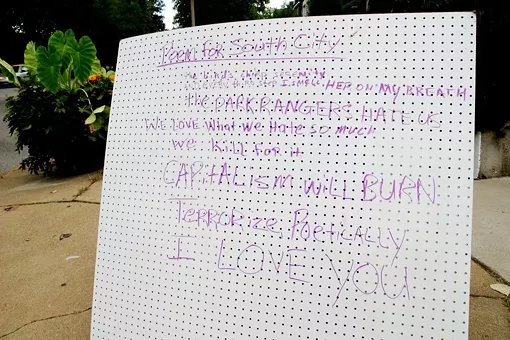 Poem for South City
I smell HER ON MY BREATH
The PARK RANGERS HATE US
We LOVE What We Hate so much
We Kill for it
CAPITALISM will BURN
Terrorize Poetically
I LOVE YOU